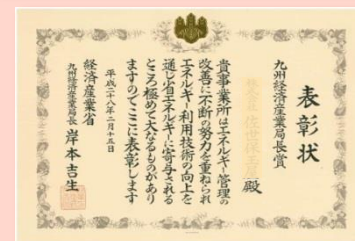 表彰状
九州経済産業局長賞
殿
貴事業所はエネルギー管理の
改善に不断の努力を重ねられ
エネルギー利用技術の向上を
通じ省エネルギーに寄与される
ところ極めて大なるものがあり
ますのでここに表彰します
平成二十八年二月十五日
経済産業省
九州経済産業局長 岸本吉生